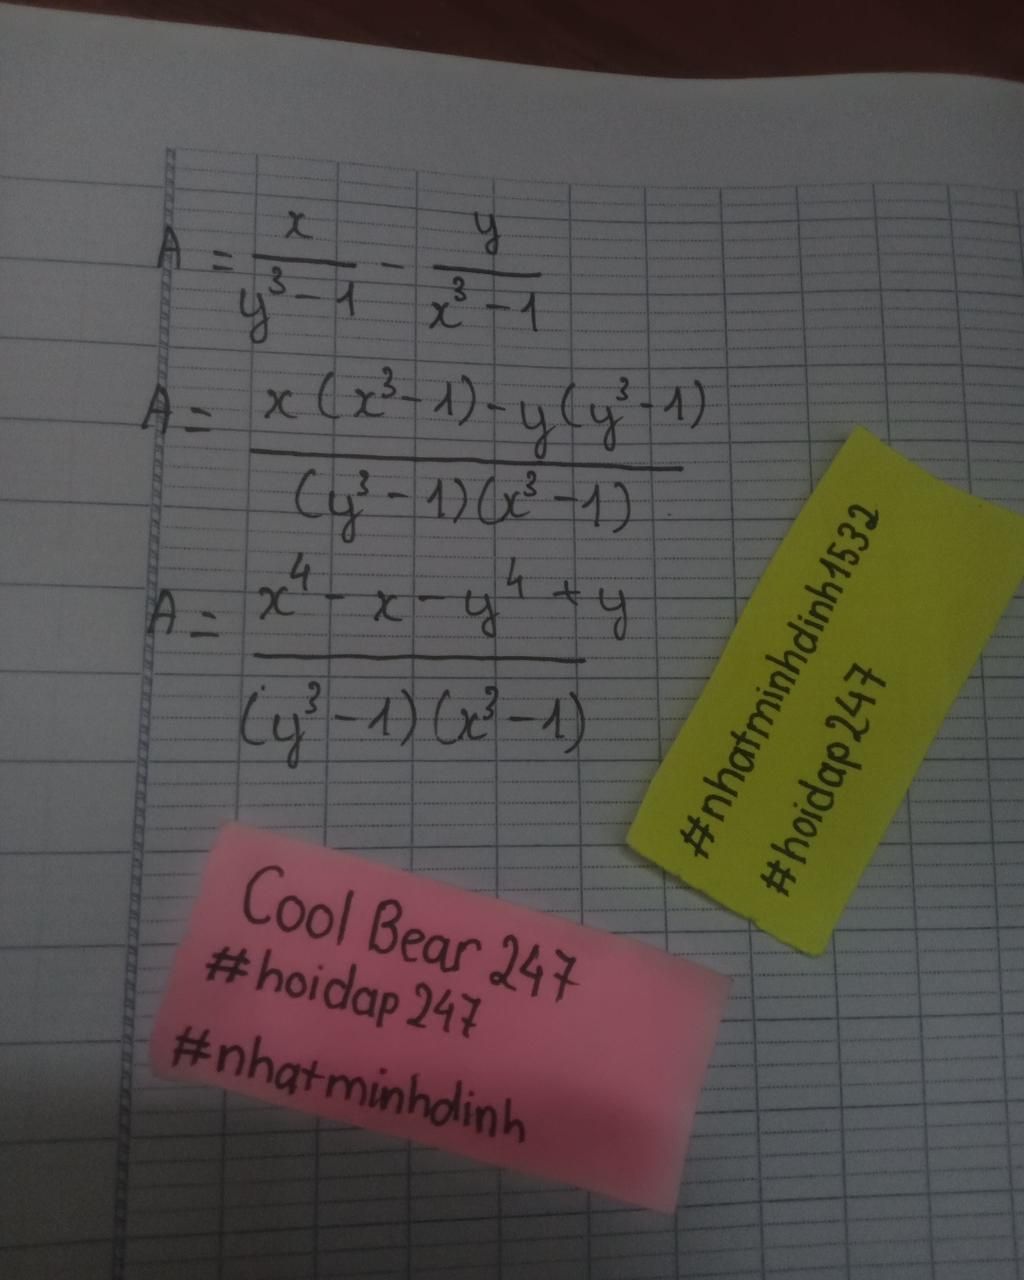 A = x/(y³ - 1) - y/(x³ - 1)
A = (x(x³ - 1) - y(y³ - 1))/((y³ - 1)(x³ - 1))
A = (x⁴ - x - y⁴ + y)/((y³ - 1)(x³ - 1))
#nhatminhdinh1532
#hoidap247
Cool Bear 247
#hoidap247
#nhatminhdinh